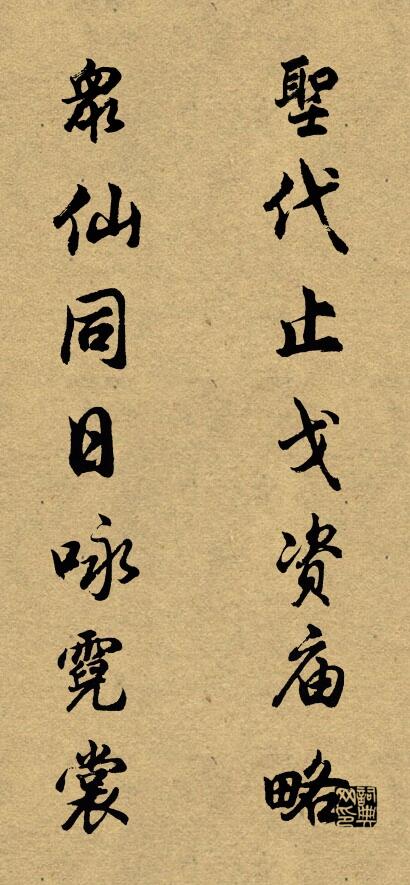 聖代止戈资庙略
衆仙同日咏霓裳